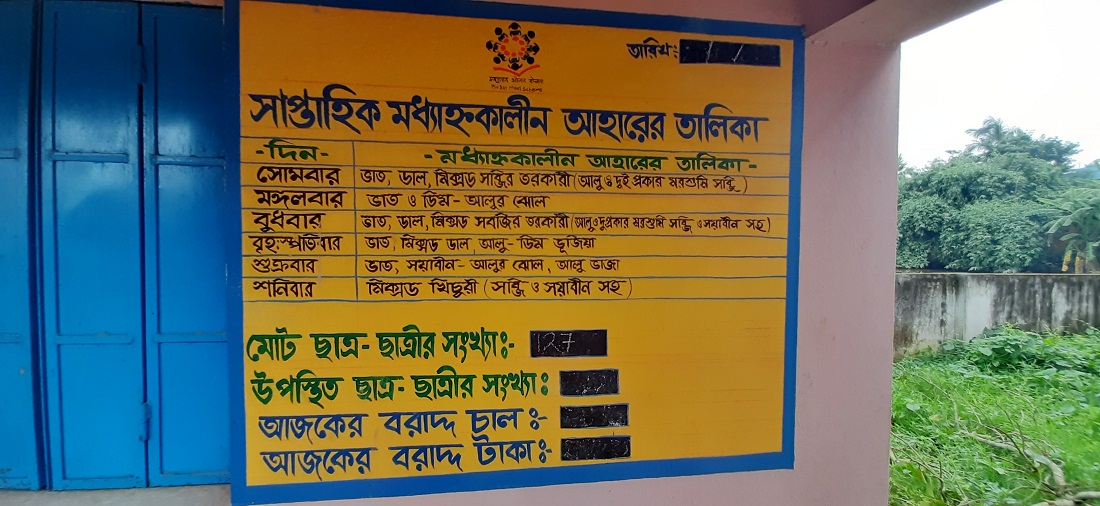 তারিখ:
সাপ্তাহিক মধ্যাহ্নকালীন আহারের তালিকা
-দিন- -মধ্যাহ্নকালীন আহারের তালিকা-
সোমবার ভাত, ডাল, মিক্সড সব্জির তরকারী (আলু ও দুই প্রকার মরশুমি সব্জি)
মঙ্গলবার ভাত ও ডিম-আলুর ঝোল
বুধবার ভাত, ডাল, মিক্সড সবজির তরকারী (আলু ও দুপ্রকার মরশুমি সব্জি ও সয়াবীন সহ)
বৃহঃস্পতিবার ভাত, মিক্সড ডাল, আলু-ডিম ভূজিয়া
শুক্রবার ভাত, সয়াবীন-আলুর ঝোল, আলু ভাজা
শনিবার মিক্সড খিচুরী (সব্জি ও সয়াবীন সহ)
মোট ছাত্র-ছাত্রীর সংখ্যাঃ- 127
উপস্থিত ছাত্র-ছাত্রীর সংখ্যাঃ
আজকের বরাদ্দ চালঃ-
আজকের বরাদ্দ টাকাঃ-